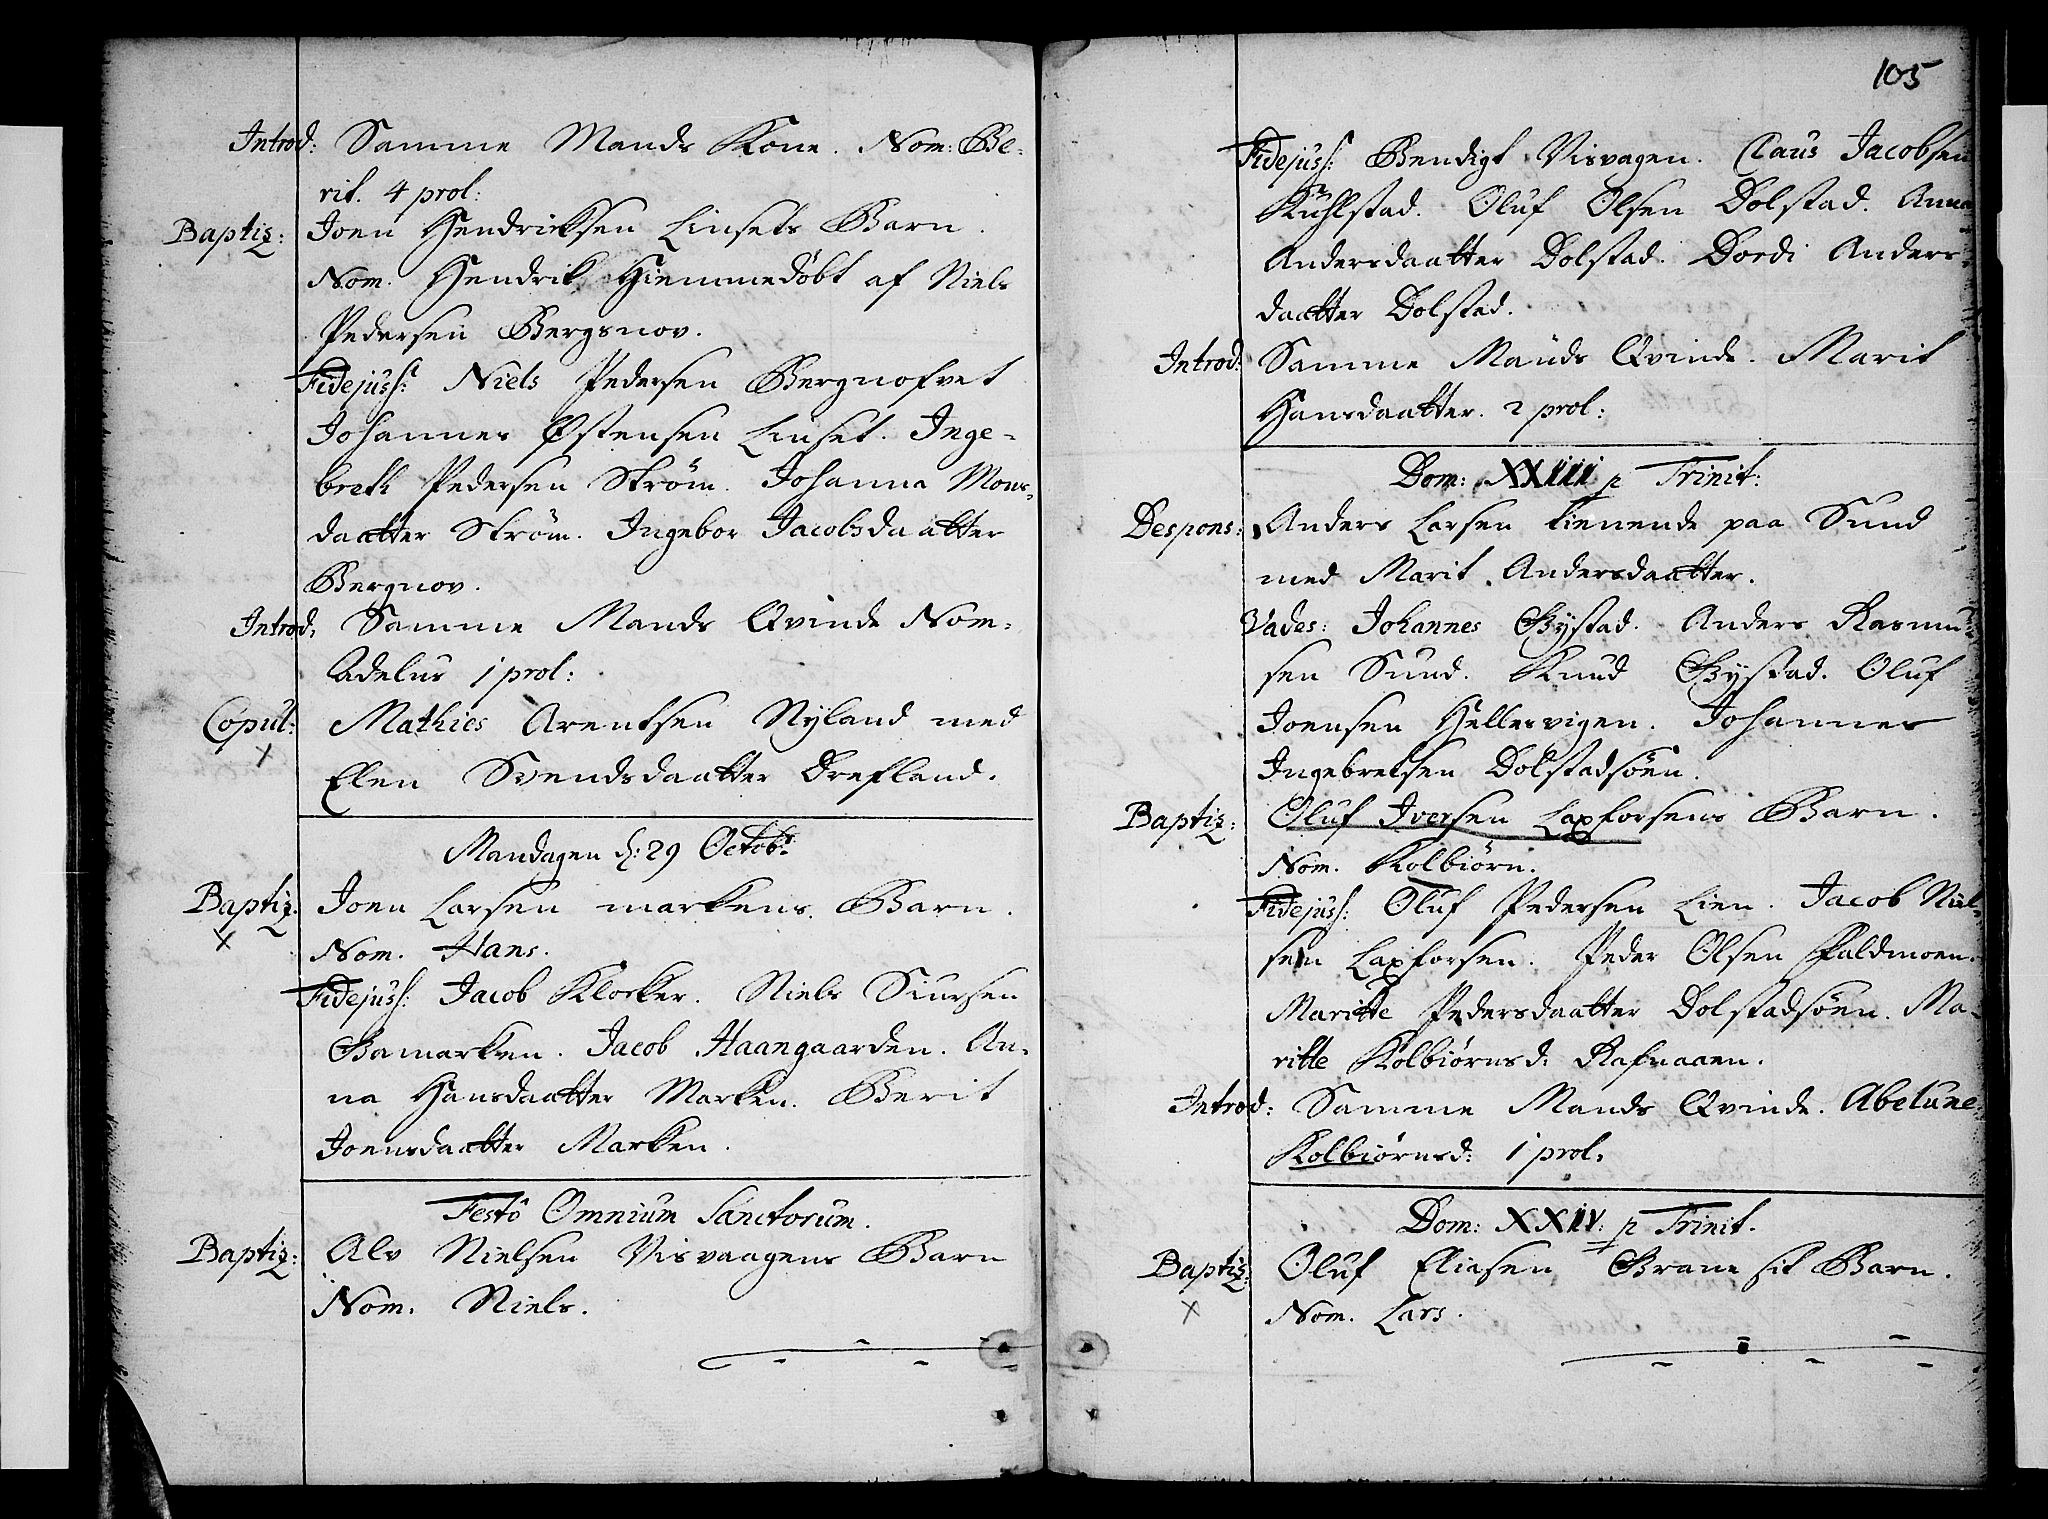 Introd: Samme Mands Kone. Nom: Be-
rit. 4 prol:
Baptiz: Joen Hendricksen Linsets Barn.
Nom. Hendrik Hiemmedöbt af Niels
Pedersen Bergsnov.
Fidejuss: Niels Pedersen Bergnofvet
Johannes Østensen Linset. Inge-
breth Pedersen Ström. Johanna Mons-
daatter Ström. Ingebor Jacobsdaatter
Bergnov.
Introd. Samme Mands Qvinde Nom.
Adelus 1 prol:
Copul: Mathies Arentsen Nyland med
Elen Svendsdaatter Drefland.
Mandagen d: 29 Octobr
Baptiz. Joen Larsen markens Barn.
Nom. Hans.
Fidejuss: Jacob Klocker. Niels Siursen
Bamarken. Jacob Haangaarden. An-
na Hansdaatter Marken. Berit
Joensdaatter Marken.
Festo Omnium Sanctorum.
Baptiz: Alv Nielsen Visvaagens Barn
Nom. Niels.
105
Fidejuss: Bendigt Visvagen. Claus Jacobsen
Kühlstad. Oluf Olsen Dolstad. Anna
Andersdaatter Dolstad. Dordi Anders-
daatter Dolstad.
Introd: Samme Mands Qvinde. Marit
Hansdaatter. 2 prol:
Dom: XXIII p Trinit:
Despons: Anders Larsen tienende paa Sund
med Marit Andersdaatter.
Vades: Johannes Bystad. Anders Rasmu-
sen Sund. Knud Bystad. Oluf
Joensen Hellesvigen. Johannes
Ingebretsen Dolstadsöen.
Baptiz: Oluf Iversen Laxforsens Barn.
Nom. Kolbiörn.
Fidejuss: Oluf Pedersen Lien. Jacob Niel-
sen Laxforsen. Peder Olsen Paldmoen.
Maritte Pedersdaatter Dolstadsöen. Ma-
ritte Kolbiörnsd: Rafnaaen.
Introd: Samme Mands Qvinde. Abelune
Kolbiörnsd: 1 prol.
Dom: XXIV: p Trinit.
Baptiz: Oluf Eliesen Brane sit Barn.
Nom. Lars.